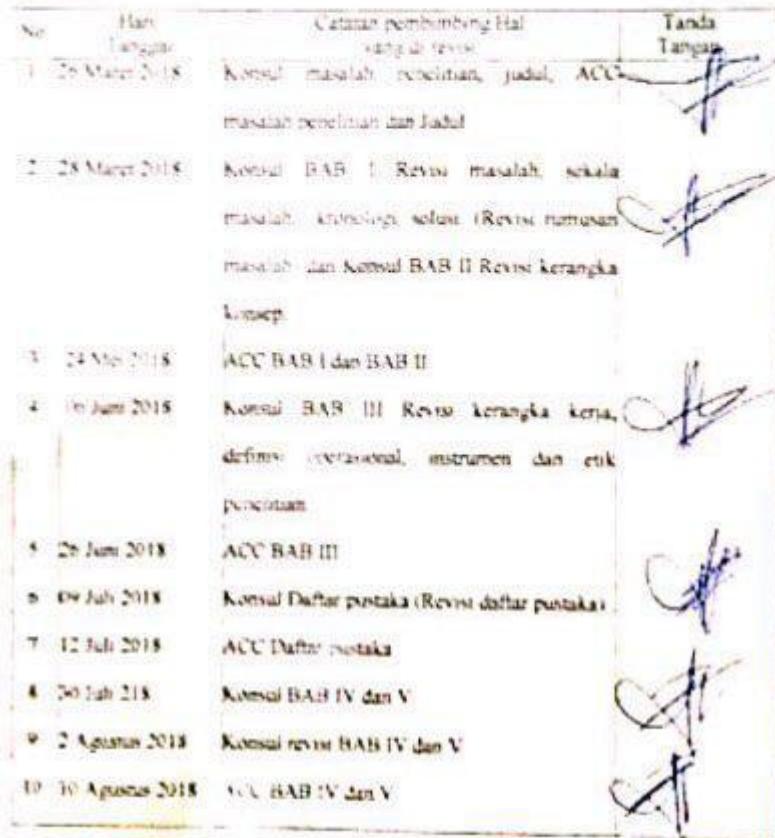 No Hari Catatan pembimbing Hal Tanda
Tanggal yang di revisi Tangan
1 26 Maret 2018 Konsul masalah penelitian, judul, ACC
masalah penelitian dan Judul
2 28 Maret 2018 Konsul BAB I Revisi masalah, sekala
masalah, kronologi, solusi (Revisi rumusan
masalah dan Konsul BAB II Revisi kerangka
konsep
3 24 Mei 2018 ACC BAB I dan BAB II
4 06 Juni 2018 Konsul BAB III Revisi kerangka kerja,
definisi operasional, instrumen dan etik
penelitian
5 26 Juni 2018 ACC BAB III
6 09 Juli 2018 Konsul Daftar pustaka (Revisi daftar pustaka)
7 12 Juli 2018 ACC Daftar pustaka
8 30 Juli 218 Konsul BAB IV dan V
9 2 Agustus 2018 Konsul revisi BAB IV dan V
10 10 Agustus 2018 ACC BAB IV dan V